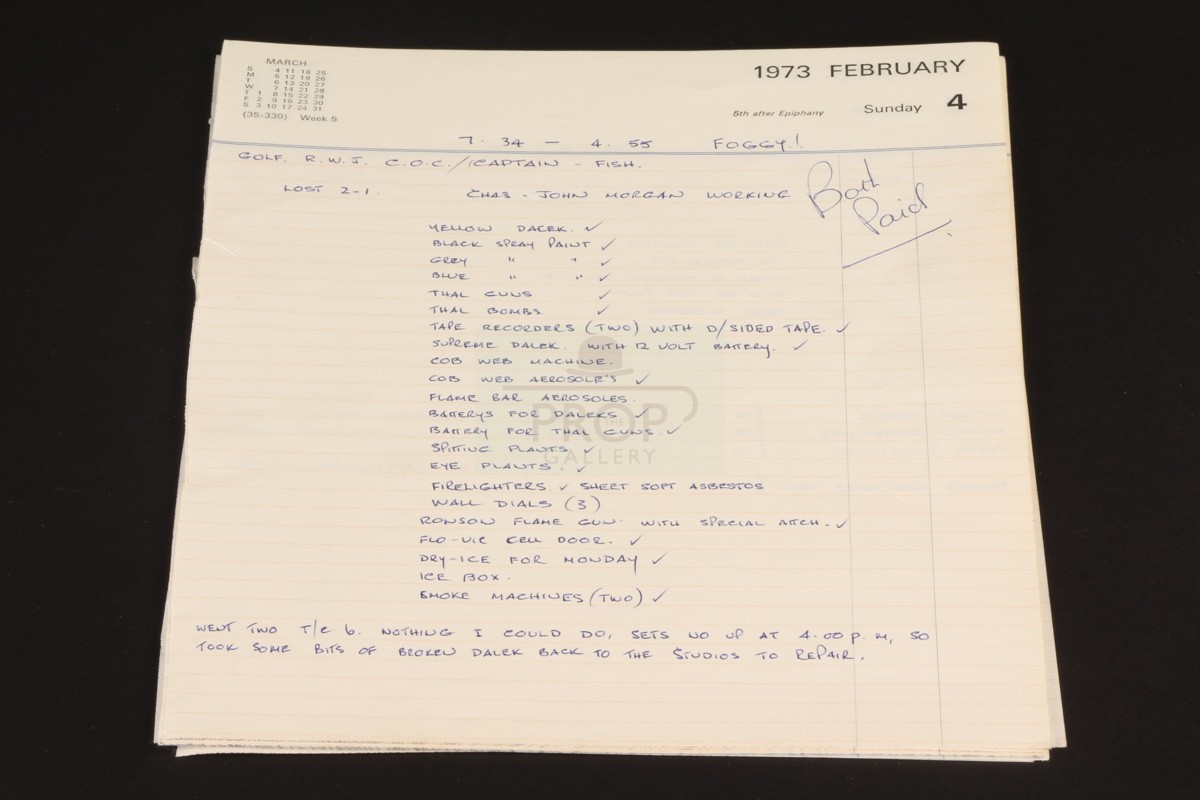 MARCH
S 4 11 18 25
M 5 12 19 26
T 6 13 20 27
W 7 14 21 28
T 1 8 15 22 29
F 2 9 16 23 30
S 3 10 17 24 31
(35-330) Week 5
1973 FEBRUARY
5th after Epiphany Sunday 4
7.34 — 4.55 FOGGY!
GOLF. R.W.J. C.O.C./CAPTAIN - FISH.
LOST 2-1. CHAS - JOHN MORGAN WORKING
Paid
YELLOW DALEK. ✓
BLACK SPRAY PAINT ✓
GREY " " ✓
BLUE " " ✓
THAL GUNS ✓
THAL BOMBS ✓
TAPE RECORDERS (TWO) WITH D/SIDED TAPE. ✓
SUPREME DALEK. WITH 12 VOLT BATTERY. ✓
COB WEB MACHINE.
COB WEB AEROSOLE'S ✓
FLAME BAR AEROSOLES.
BATTERYS FOR DALEKS ✓
BATTERY FOR THAL GUNS. ✓
SPITTING PLANTS ✓
EYE PLANTS. ✓
FIRELIGHTERS ✓ SHEET SOFT ASBESTOS
WALL DIALS (3)
RONSON FLAME GUN. WITH SPECIAL ATCH. ✓
FLO-VIC CELL DOOR. ✓
DRY-ICE FOR MONDAY ✓
ICE BOX.
SMOKE MACHINES (TWO) ✓
WENT TWO T/C 6. NOTHING I COULD DO, SETS NO UP AT 4.00 P.M, SO
TOOK SOME BITS OF BROKEN DALEK BACK TO THE STUDIOS TO REPAIR.
THE
PROP
GALLERY